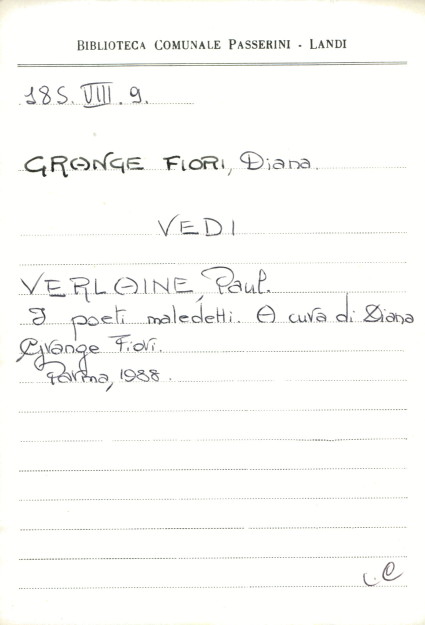 BIBLIOTECA COMUNALE PASSERINI - LANDI
185. VIII. 9.
GRANGE FIORI, Diana.
VEDI
VERLAINE, Paul.
I poeti maledetti. A cura di Diana
Grange Fiori.
Parma, 1988.